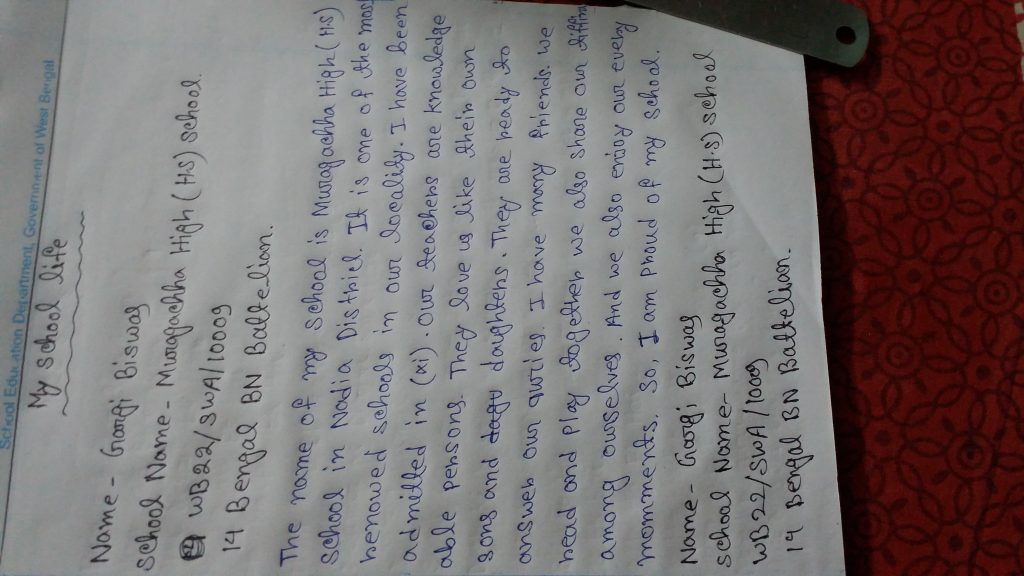 School Education Department, Government of West Bengal
My school life
Name- Gargi Biswas
school Name- Muragachha High (H.S) school.
WB22/SWA/110009
14 Bengal BN Battelian.
The name of my school is Muragachha High (HS)
school in Nadia District. It is one of the most
renowed schools in our locality. I have been
admitted in (xi). our teachers are knowledge
able persons. They love us like their own
sons and daughters. They are ready to
answer our quries. I have many friends. we
read and play together we also share our
among ourselves. And we also enjoy our every
momments. So, I am proud of my school.
Name- Gargi Biswas
school Name- Muragachha High (H.S) school
WB22/SWA/110009
14 Bengal BN Battelian.